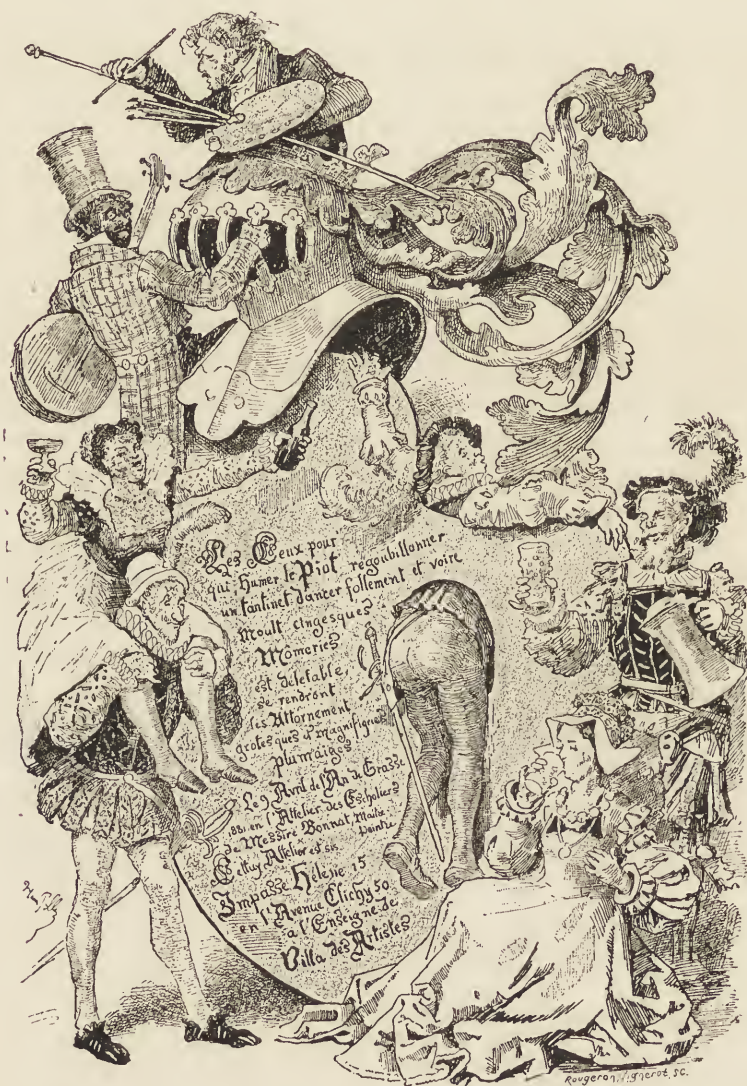 Les Ceux pour
qui Humer le Piot regoubillonner
un tantinet dancer follement et voire
Moult singesques
Mômeries
est delectable,
se rendront
les Attornement
grotesques & magnifiques
plumaiges
Le 9 Avril de l'An de Grasse
1881 en l'Attelier des Escholiers
de Messire Bonnat Maitre
Peintre
Cettuy Attelier est sis
Impasse Hélène 15
en l'Avenue Clichy 50
à l'Enseigne de
Villa des Artistes
Rougeron Vignerot, SC.